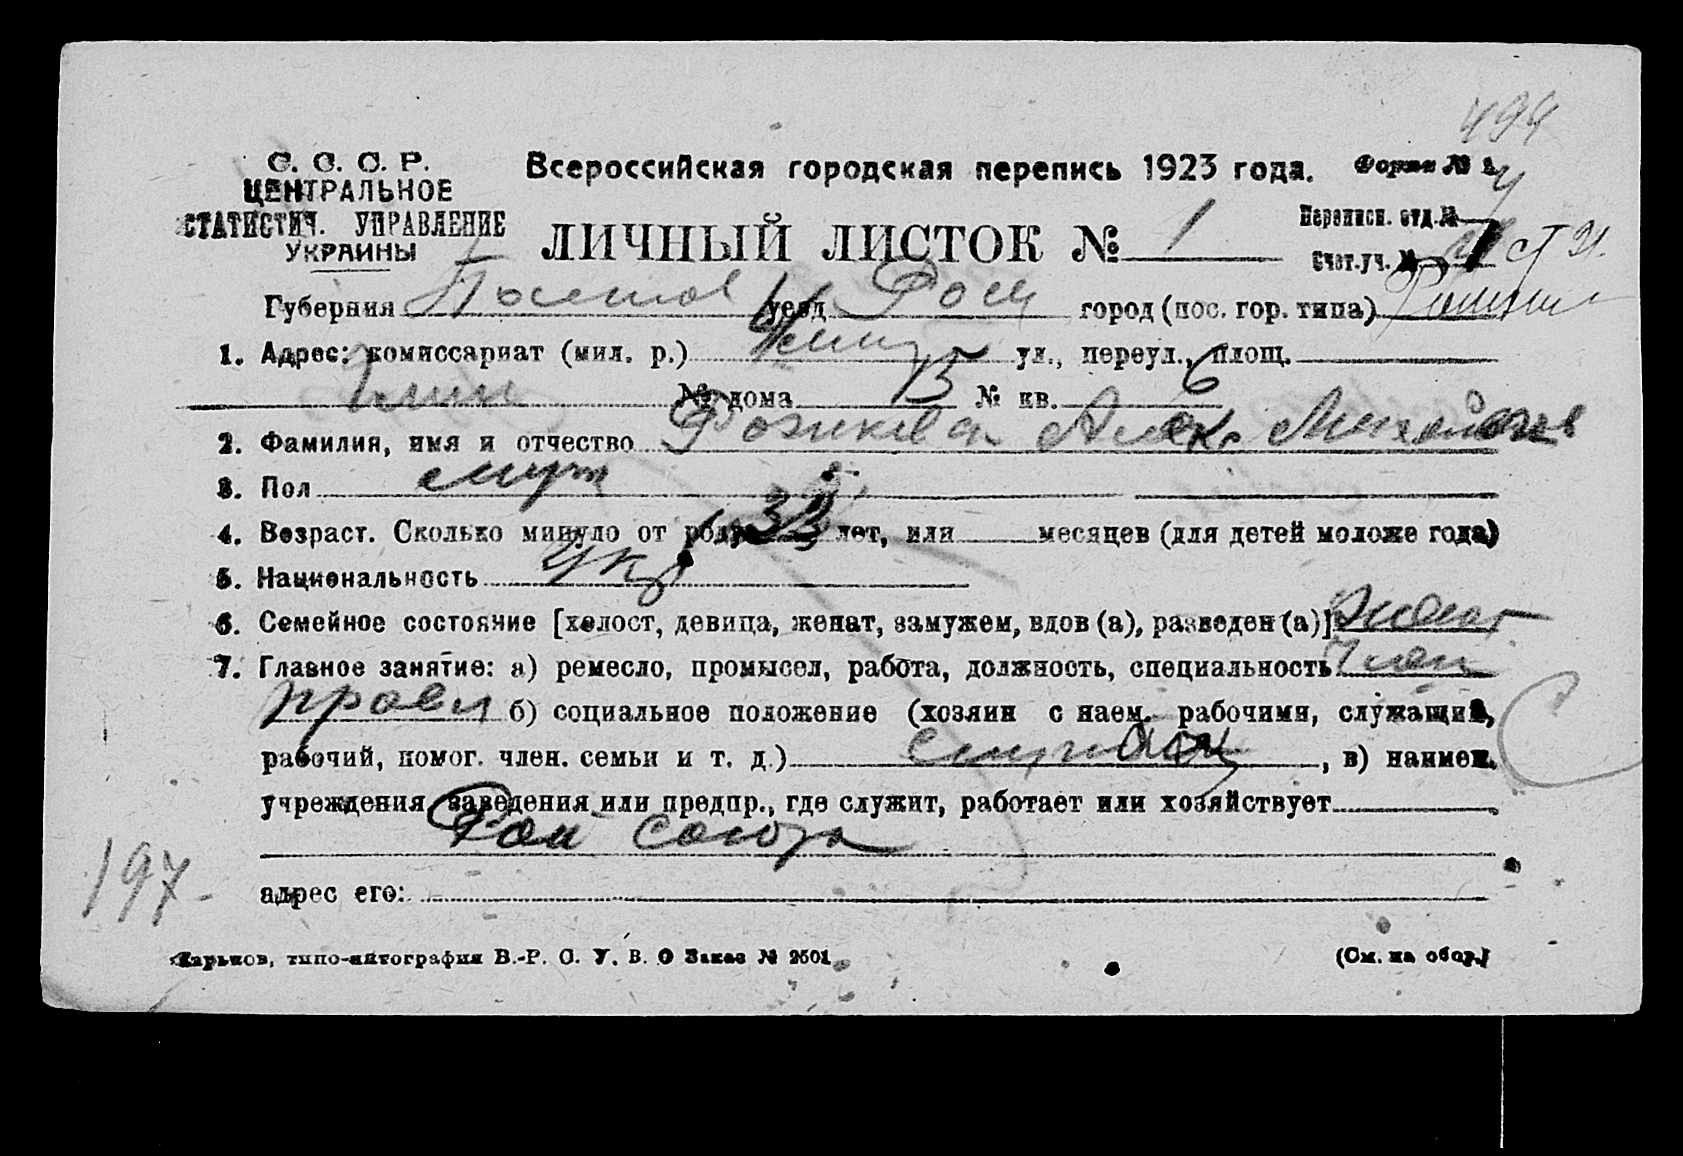 494
С. С. С. Р.
ЦЕНТРАЛЬНОЕ
СТАТИСТИЧ. УПРАВЛЕНИЕ
УКРАИНЫ
Всероссийская городская перепись 1923 года.
Форма № 1
ЛИЧНЫЙ ЛИСТОК № 1
Переписн. отд. №
Счет. уч. №
Губерния Полтав уезд Ром город (пос. гор. типа)
1. Адрес: комиссариат (мил. р.) ул., переул., площ.
№ дома 13 № кв. 6
2. Фамилия, имя и отчество
3. Пол муж
4. Возраст. Сколько минуло от роду 33 лет, или месяцев (для детей моложе года)
5. Национальность укр
6. Семейное состояние [холост, девица, женат, замужем, вдов (а), разведен (а)] женат
7. Главное занятие: а) ремесло, промысел, работа, должность, специальность член
правл б) социальное положение (хозяин с наем. рабочими, служащий,
рабочий, помог. член. семьи и т. д.) служащ , в) наимен.
учреждения, заведения или предпр., где служит, работает или хозяйствует
Рай союза
адрес его:
197-
Харьков, типо-литография В.-Р. С. У. В. О Заказ № 2501
(См. на обор.)